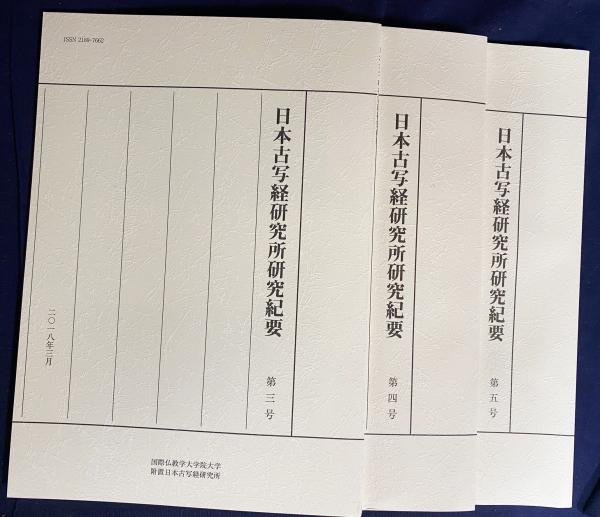 ISSN 2189-7662
日本古写経研究所研究紀要
第三号
二〇一八年三月
国際仏教学大学院大学
附置日本古写経研究所
日本古写経研究所研究紀要
第四号
日本古写経研究所研究紀要
第五号